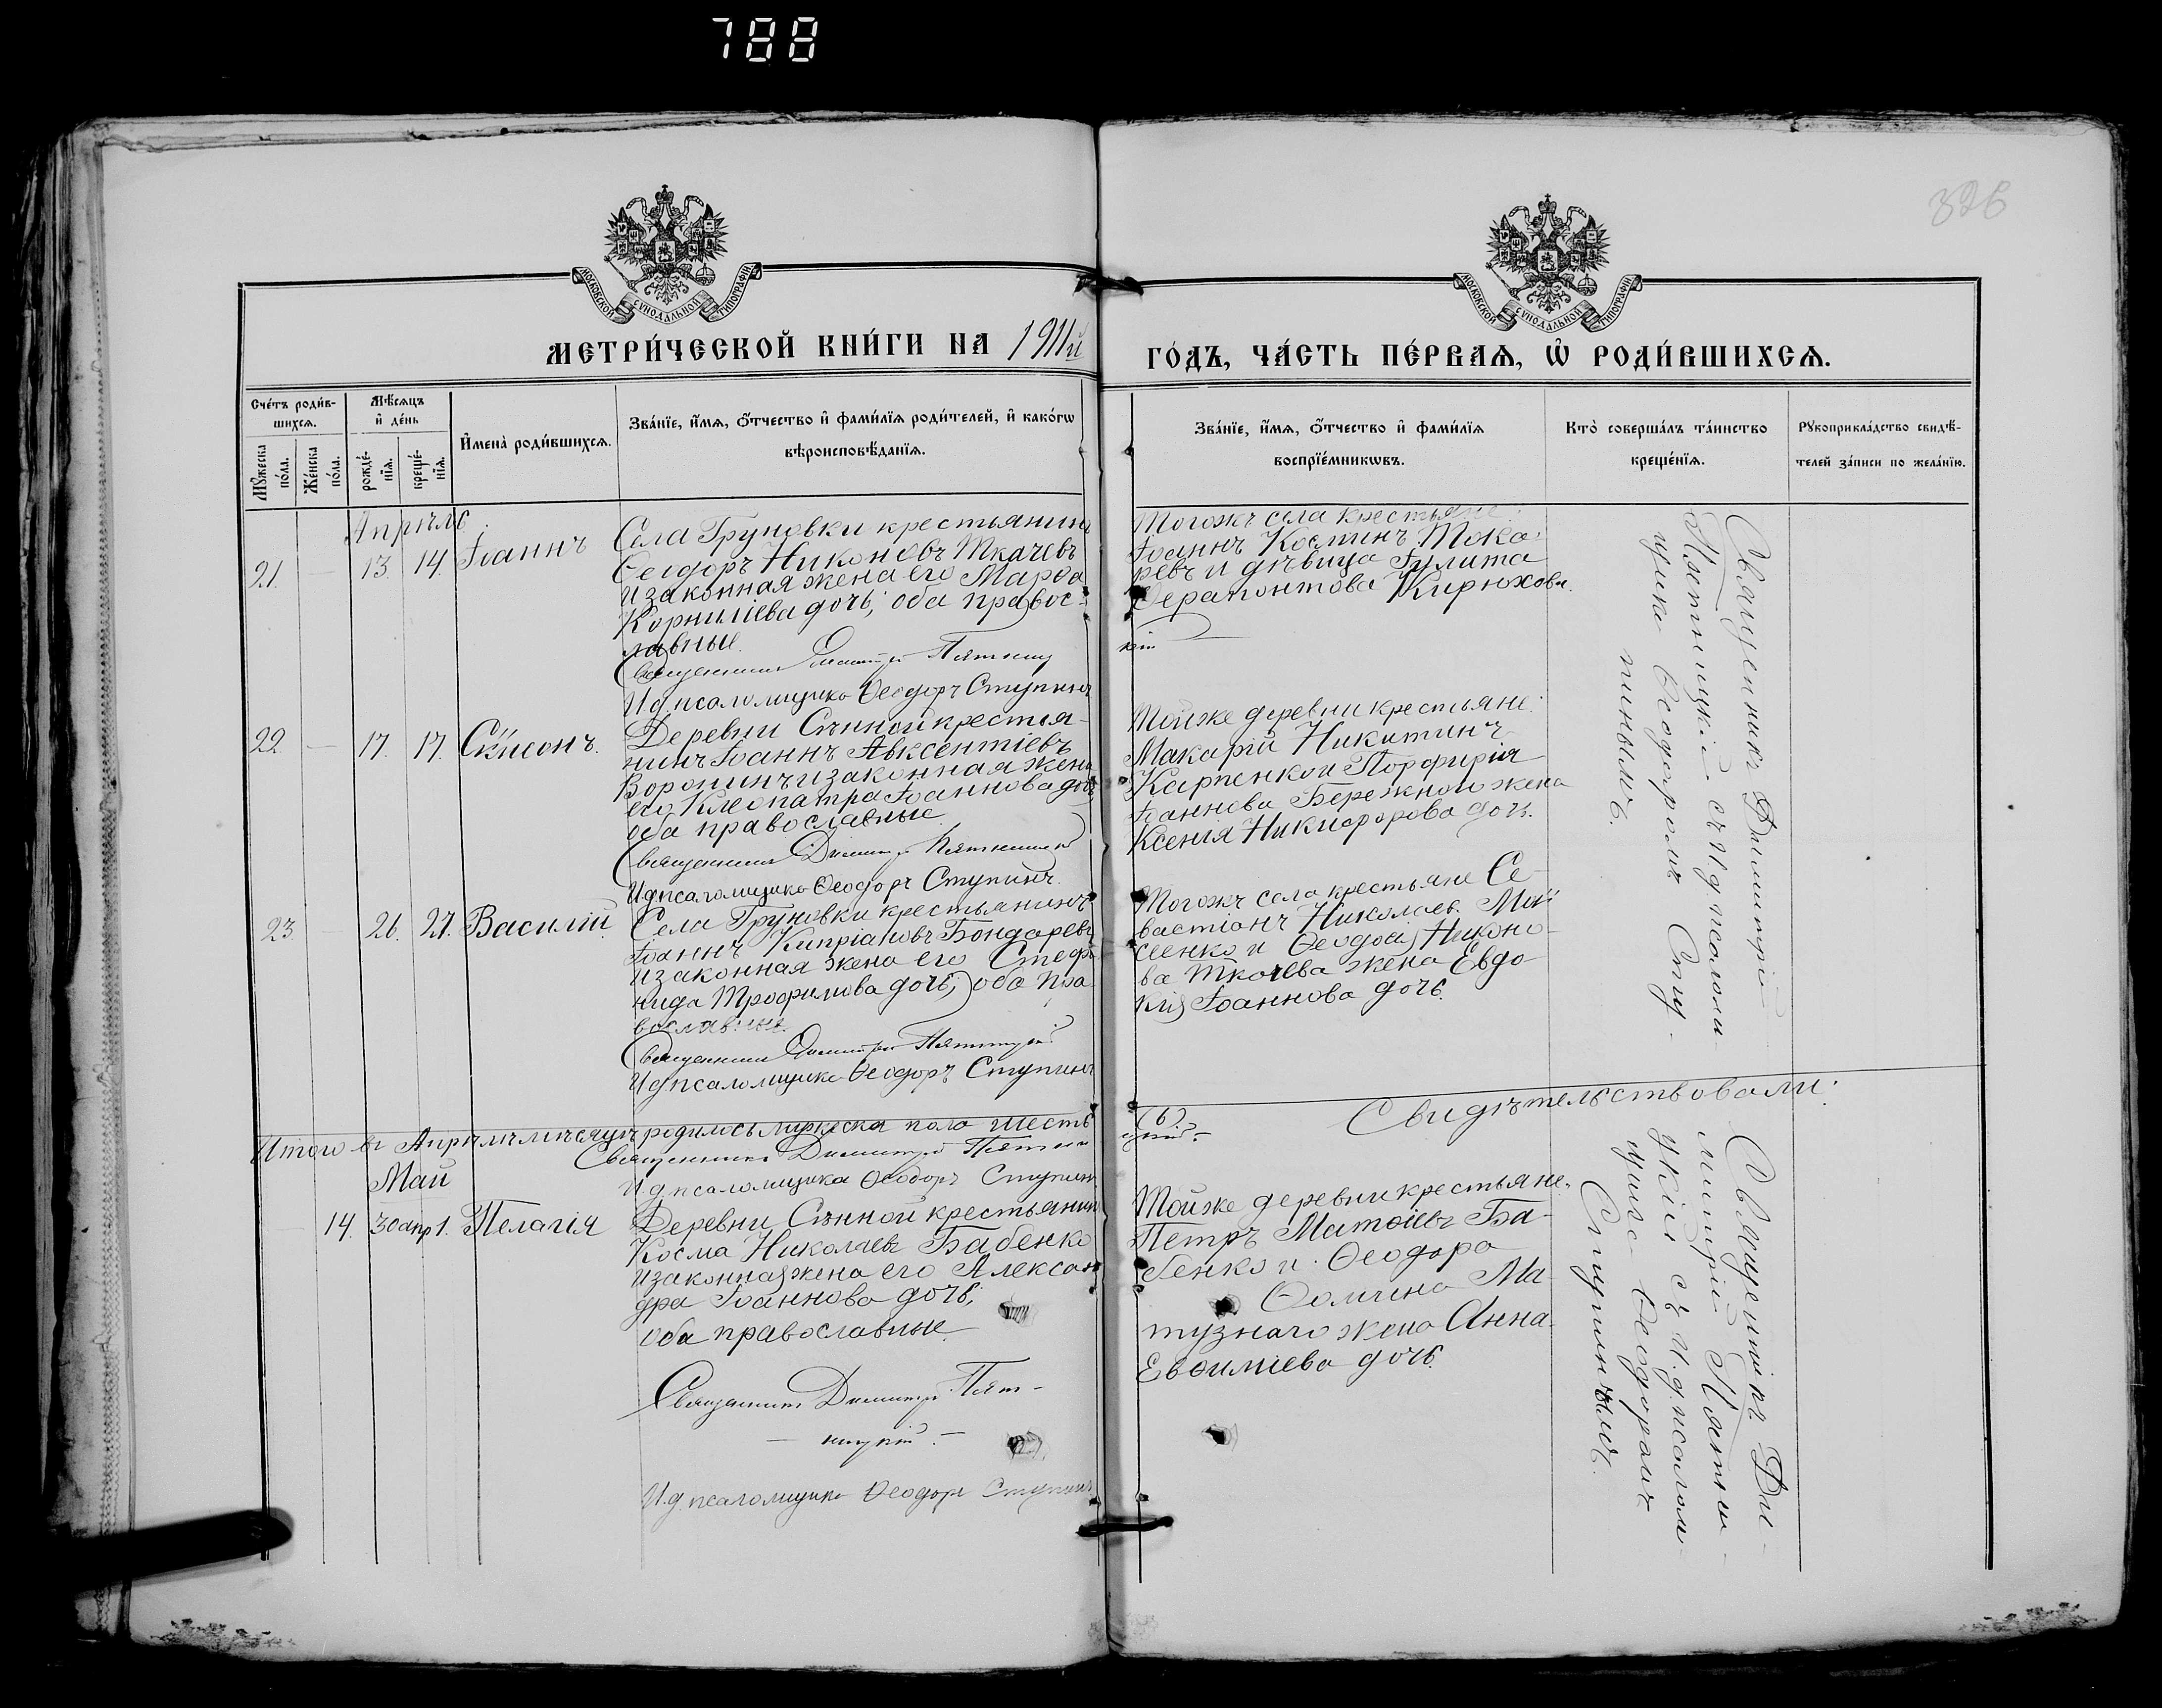 788
326
МОСКОВСКОЙ СѴНОДАЛЬНОЙ ТИПОГРАФІИ
МОСКОВСКОЙ СѴНОДАЛЬНОЙ ТИПОГРАФІИ
МЕТРИ́ЧЕСКОЙ КНИ́ГИ НА 1911й
ГО́ДЪ, ЧА́СТЬ ПЕ́РВАѦ, Ѡ҆ РОДИ́ВШИХСѦ.
Сче́тъ роди́в-
шихсѧ.
Мꙋ́жеска по́ла.
Же́нска по́ла.
Мѣ́сѧцъ
и҆ де́нь
рожде́-
нїѧ.
креще́-
нїѧ.
И҆мена̀ роди́вшихсѧ.
Зва́нїе, и҆́мѧ, ѻ҆́тчество и҆ фами́лїѧ роди́телей, и҆ како́гѡ
вѣроисповѣ́данїѧ.
Зва́нїе, и҆́мѧ, ѻ҆́тчество и҆ фами́лїѧ
воспрїе́мникѡвъ.
Кто̀ соверша́лъ та́инство
креще́нїѧ.
Рꙋкоприкла́дство свидѣ́-
телей за́писи по жела́нїю.
Апрѣль
21. – 13. 14. Іоаннъ
Села Груновки крестьянинъ
Ѳеодоръ Никоновъ Ткачевъ
и законная жена его Марѳа
Корниліева дочь; оба правос-
лавные.
Священникъ Димитрій Пятниц
кій
И.д. псаломщика Ѳеодоръ Ступинъ
Тогожъ села крестьяне:
Іоаннъ Косминъ Тока-
ревъ и дѣвица Іулита
Ѳерапонтова Кирюхова.
22. – 17. 17. Сѵмеонъ.
Деревни Сѣнной крестья-
нинъ Іоаннъ Авксентіевъ
Воронинъ и законная жена
его Клеопатра Іоаннова дочь
оба православные
Священникъ Димитрій Пятницкій
И.д. псаломщика Ѳеодоръ Ступинъ.
Тойже деревни крестьяне:
Макарій Никитинъ
Карпенко и Порфирія
Іоаннова Бережного жена
Ксенія Никифорова дочь.
23 – 26. 27. Василій.
Села Груновки крестьянинъ
Іоаннъ Кипріановъ Бондаревъ
и законная жена его Стефа
нида Трофимова дочь; оба пра
вославные.
Священникъ Димитрій Пятницкій
И.д. псаломщика Ѳеодоръ Ступинъ
Тогожъ села крестьяне Се-
вастіанъ Николаев. Мои
сеенко и Ѳеодосія Никоно-
ва Ткачева жена Евдо-
кія Іоаннова дочь.
Священникъ Димитрій
Пятницкій съ И.д. псалом-
щика Ѳеодоромъ Сту-
пинымъ.
Итого въ Апрѣлѣ мѣсяцѣ родилось мужеска пола шесть
(6).
Свидѣтельствовали:
Священникъ Димитрій Пятни
цкій.
И.д. псаломщика Ѳеодоръ Ступинъ
Май
14. 30 апр 1. Пелагія
Деревни Сѣнной крестьянин
Косма Николаевъ Бабенко
и законная жена его Алексан
дра Іоаннова дочь;
оба православные.
Священникъ Димитрій Пят-
ницкій. –
И.д. псаломщика Ѳеодоръ Ступинъ
Тойже деревни крестьяне.
Петръ Матѳіевъ Ба-
бенко и Ѳеодора
Ѳомина Ма-
тузнаго жена Анна
Евѳиміева дочь.
Священникъ Ди-
митрій Пятни-
цкій съ И.д. псалом-
щика Ѳеодоромъ
Ступинымъ.